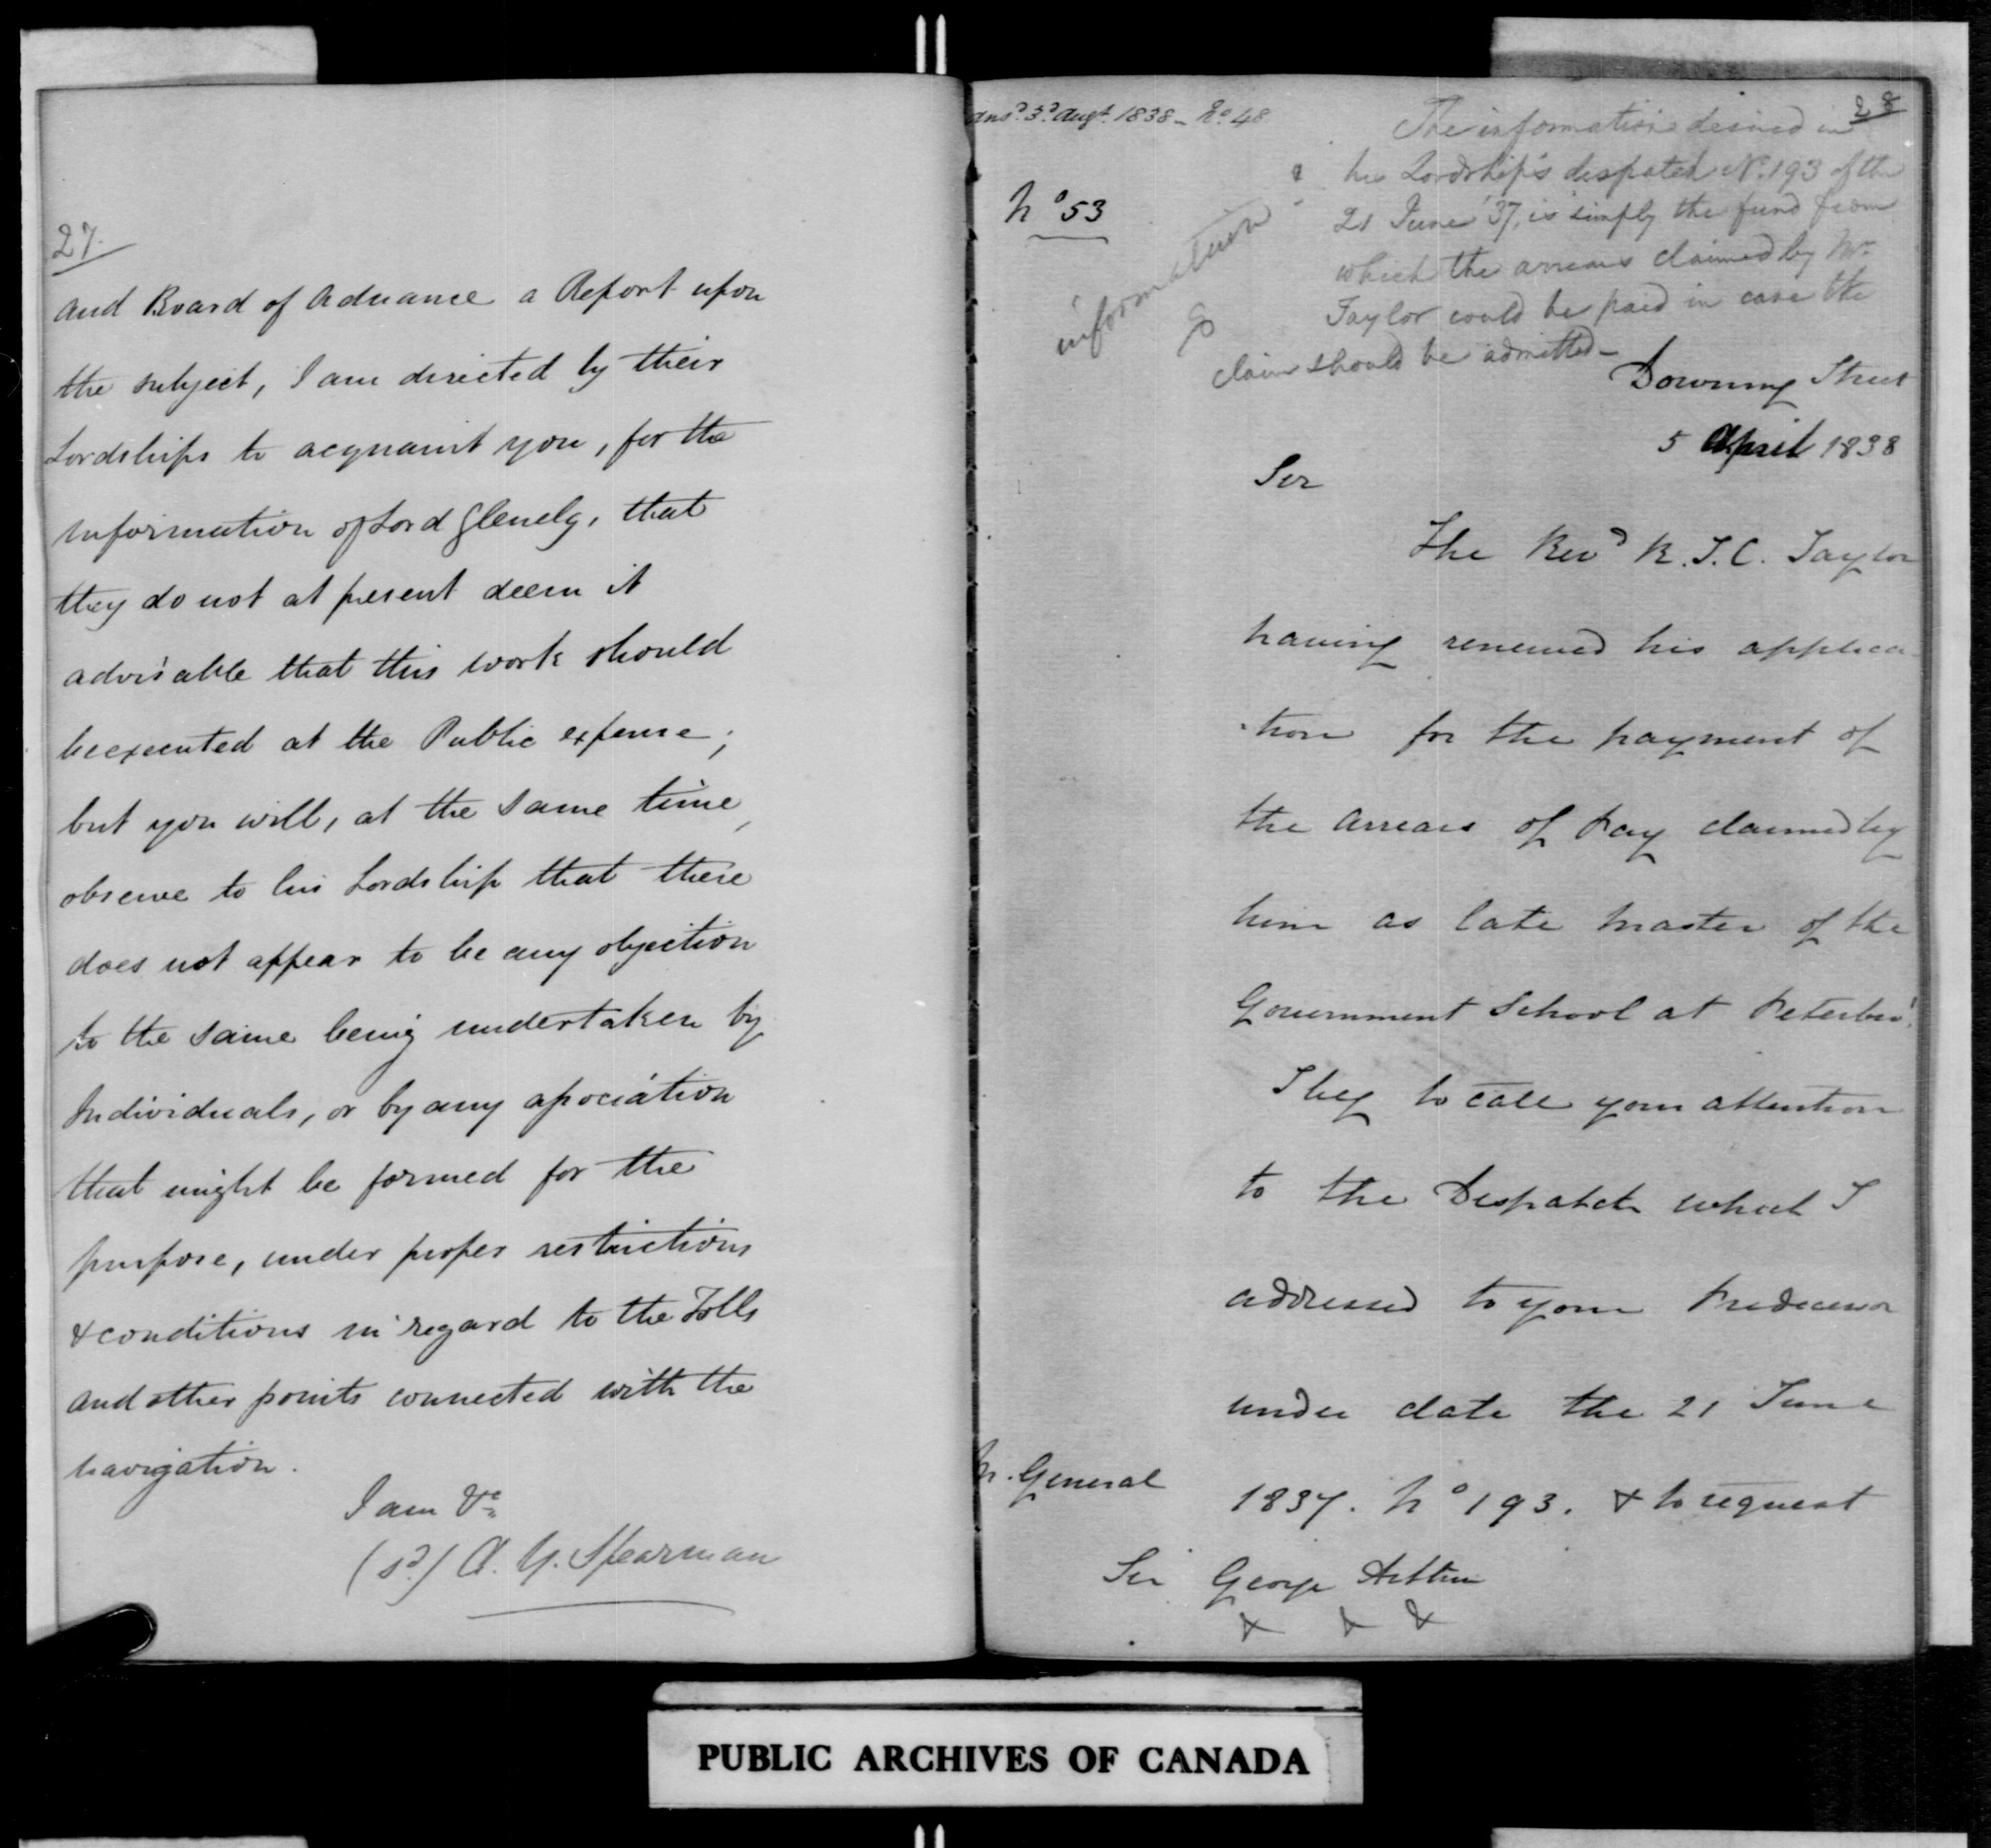 27.
and Board of Adnance a Report upon
the subject, I am directed by their
Lordships to acquaint you, for the
information of Lord Glenelg, that
they do not at present deem it
advisable that this work should
be executed at the Public expense;
but you will, at the same time,
observe to his Lordship that there
does not appear to be any objection
to the same being undertaken by
Individuals, or by any association
that might be formed for the
purpose, under proper restrictions
& conditions in regard to the Tolls
and other points connected with the
navigation.
I am &c
(sd) A. Y. Spearman
ansd 3d Augt 1838 - No 48
28
The information desired in
his Lordship's despatch No 193 of the
21 June '37, is simply the fund from
which the arrears claimed by Mr
Taylor could be paid in case the
claim should be admitted -
information
No 53
Downing Street
5 April 1838
Sir
The Revd R. J. C. Taylor
having renewed his applica
-tion for the payment of
the arrears of Pay claimed by
him as late Master of the
Government School at Peterbro'.
I beg to call your attention
to the Despatch which I
addressed to your Predecessor
under date the 21 June
1837. No 193. & to request
M. General
Sir George Arthur
& & &
PUBLIC ARCHIVES OF CANADA